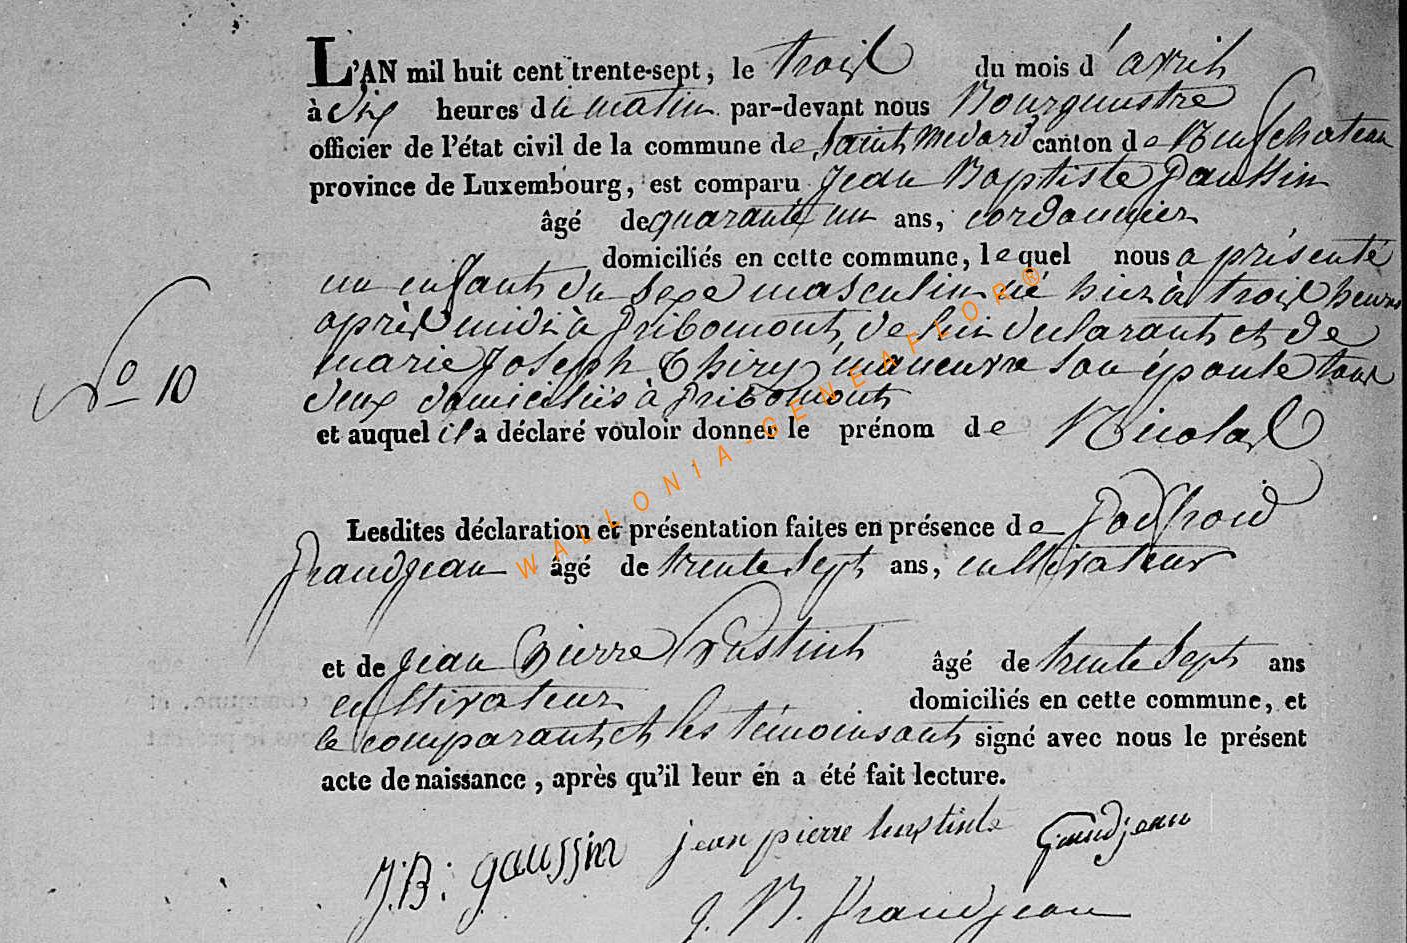 L'AN mil huit cent trente-sept, le trois du mois d'avril
à dix heures du matin par-devant nous Bourgmestre
officier de l'état civil de la commune de Saint Medard canton de Neufchateau
province de Luxembourg, est comparu Jean Baptiste Gaussin
âgé de quarante un ans, cordonnier
domiciliés en cette commune, lequel nous a présenté
un enfant du sexe masculin né hier à trois heures
après midi à Gribomont, de lui declarant et de
marie Joseph Thiry maneuvre son épouse tous
deux domiciliés à Gribomont
et auquel il a déclaré vouloir donner le prénom de Nicolas
No 10
Lesdites déclaration et présentation faites en présence de Godfroid
Grandjean âgé de trente sept ans, cultivateur
et de Jean Pierre âgé de trente sept ans
cultivateur domiciliés en cette commune, et
le comparant et les témoins ont signé avec nous le présent
acte de naissance, après qu'il leur en a été fait lecture.
J:B: gaussin jean pierre Grandjean
J. B. Grandjean
WALLONIA-GENEAFLOR®